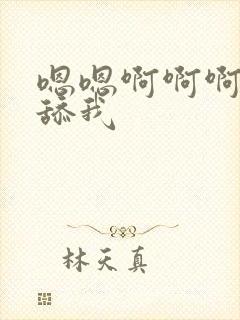 嗯嗯啊啊啊
舔我
林天真